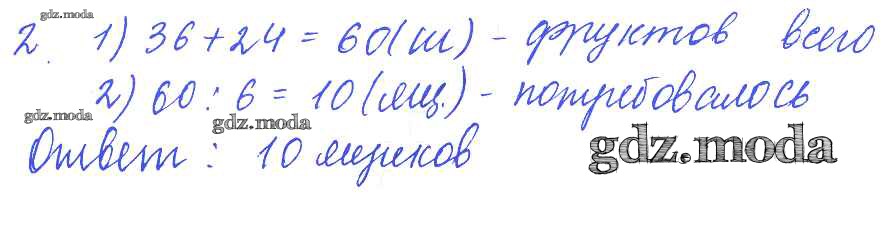 gdz.moda
2. 1) 36 + 24 = 60 (ш) - фруктов всего
2) 60 : 6 = 10 (ящ.) - потребовалось
gdz.moda gdz.moda
Ответ : 10 ящиков gdz.moda